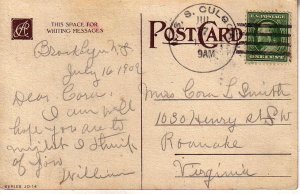 THIS SPACE FOR
WRITING MESSAGES
POSTCARD
U.S.S. CULGOA
JUL
9AM
ONE CENT
Brooklyn NY
July 16 1909
Dear Cora,
I am well
hope you are to
night I think
of you
William
Miss Cora L Smith
1030 Henry St SW
Roanoke
Virginia
SERIES JO-14